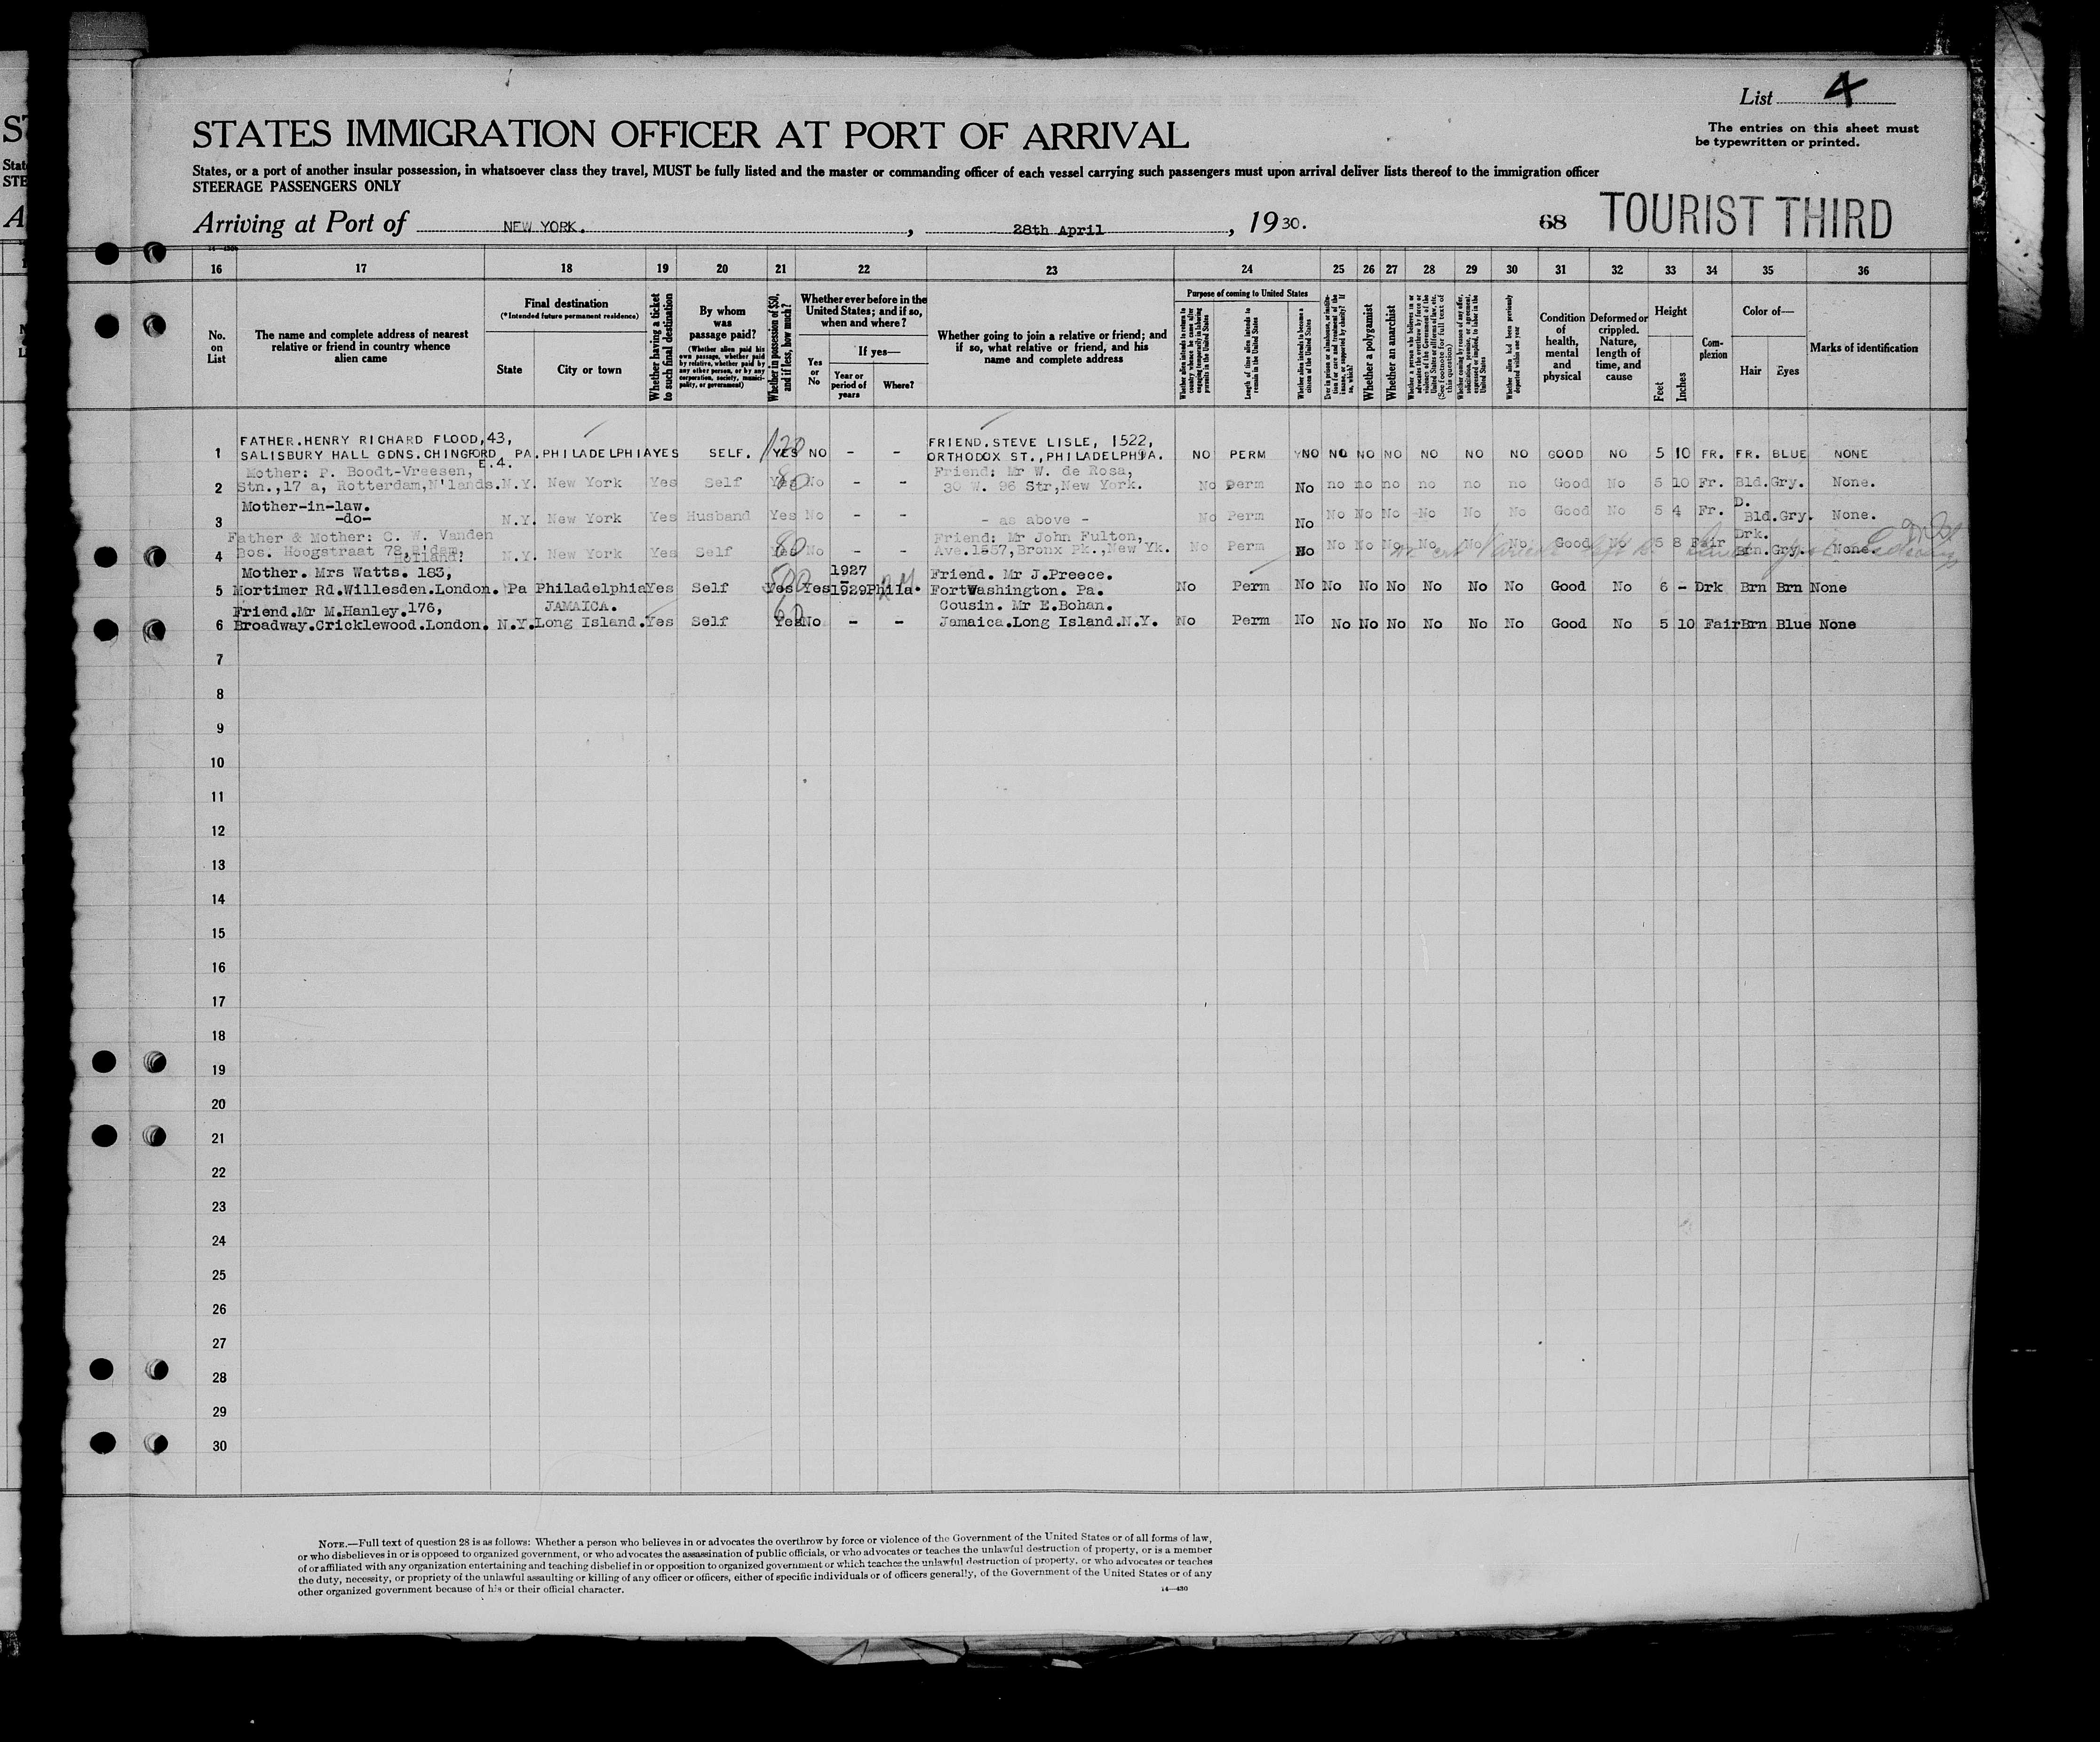 List 4
The entries on this sheet must
be typewritten or printed.
STATES IMMIGRATION OFFICER AT PORT OF ARRIVAL
States, or a port of another insular possession, in whatsoever class they travel, MUST be fully listed and the master or commanding officer of each vessel carrying such passengers must upon arrival deliver lists thereof to the immigration officer
STEERAGE PASSENGERS ONLY
Arriving at Port of NEW YORK. , 28th April , 1930.
68 TOURIST THIRD
16 17 18 19 20 21 22 23 24 25 26 27 28 29 30 31 32 33 34 35 36
No. on List
The name and complete address of nearest relative or friend in country whence alien came
Final destination
(*Intended future permanent residence)
State
City or town
Whether having a ticket to such final destination
By whom was passage paid?
(Whether alien paid his own passage, whether paid by relative, whether paid by any other person, or by any corporation, society, municipality, or government)
Whether in possession of $50, and if less, how much?
Whether ever before in the United States; and if so, when and where?
Yes or No
If yes—
Year or period of years
Where?
Whether going to join a relative or friend; and if so, what relative or friend, and his name and complete address
Purpose of coming to United States
Length of time alien intends to remain in the United States
Whether alien intends to become a citizen of the United States
Whether a polygamist
Whether an anarchist
Whether alien had been previously deported within one year
Condition of health, mental and physical
Deformed or crippled. Nature, length of time, and cause
Height
Feet
Inches
Complexion
Color of—
Hair
Eyes
Marks of identification
1 FATHER.HENRY RICHARD FLOOD,43, SALISBURY HALL GDNS.CHINGFORD E.4. PA. PHILADELPHIA YES SELF. YES 120 NO - - FRIEND.STEVE LISLE, 1522, ORTHODOX ST.,PHILADELPHIA. NO PERM NO NO NO NO NO NO NO GOOD NO 5 10 FR. FR. BLUE NONE
2 Mother: P. Boodt-Vreesen, Stn.,17 a, Rotterdam,N'lands. N.Y. New York Yes Self Yes 80 No - - Friend: Mr W. de Rosa, 30 W. 96 Str,New York. No Perm No no no no no no no Good No 5 10 Fr. Bld. Gry. None.
3 Mother-in-law. -do- N.Y. New York Yes Husband Yes No - - - as above - No Perm No No No No No No No Good No 5 4 Fr. D. Bld. Gry. None.
4 Father & Mother: C. W. Vanden Bos. Hoogstraat 72,R'dam, Holland. N.Y. New York Yes Self Yes 60 No - - Friend: Mr John Fulton, Ave.1557,Bronx Pk.,New Yk. No Perm No No No No No No No Good No 5 8 Fair Drk. Brn. Gry. None.
5 Mother. Mrs Watts. 183, Mortimer Rd.Willesden.London. Pa Philadelphia Yes Self Yes 500 Yes 1927 - 1929 Phila. Friend. Mr J.Preece. FortWashington. Pa. No Perm No No No No No No No Good No 6 - Drk Brn Brn None
6 Friend.Mr M.Hanley.176, Broadway.Cricklewood.London. N.Y. JAMAICA. Long Island. Yes Self Yes 60 No - - Cousin. Mr E.Bohan. Jamaica.Long Island.N.Y. No Perm No No No No No No No Good No 5 10 Fair Brn Blue None
7
8
9
10
11
12
13
14
15
16
17
18
19
20
21
22
23
24
25
26
27
28
29
30
NOTE.—Full text of question 28 is as follows: Whether a person who believes in or advocates the overthrow by force or violence of the Government of the United States or of all forms of law,
or who disbelieves in or is opposed to organized government, or who advocates the assassination of public officials, or who advocates or teaches the unlawful destruction of property, or is a member
of or affiliated with any organization entertaining and teaching disbelief in or opposition to organized government or which teaches the unlawful destruction of property, or who advocates or teaches
the duty, necessity, or propriety of the unlawful assaulting or killing of any officer or officers, either of specific individuals or of officers generally, of the Government of the United States or of any
other organized government because of his or their official character.
14—430